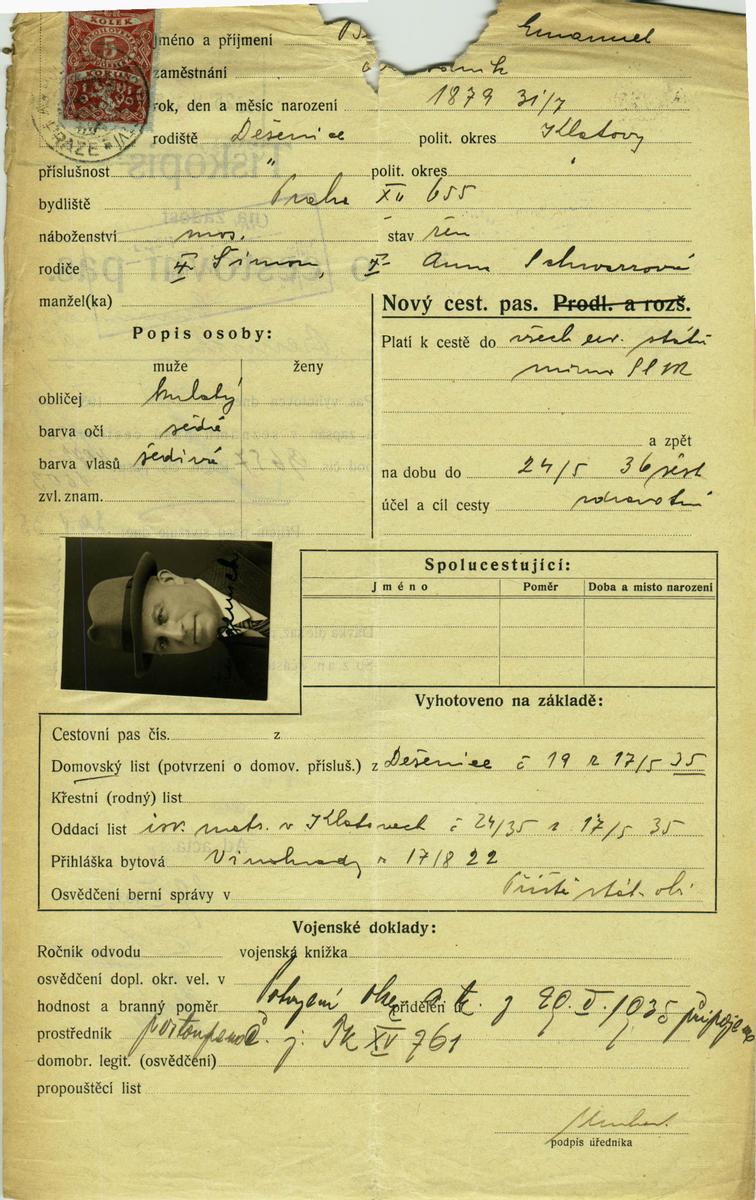 KOLEK
5
Jméno a příjmení Emanuel
zaměstnání
rok, den a měsíc narození 1879 31/7
rodiště Dešenice polit. okres Klatovy
příslušnost " polit. okres "
bydliště Praha XII 655
náboženství mos. stav žen
rodiče Šimon, Anna Schwarzová
manžel(ka)
Nový cest. pas. Prodl. a rozš.
Popis osoby:
Platí k cestě do všech evr. států
muže ženy
mimo SSSR
obličej kulatý
barva očí šedé
a zpět
barva vlasů šedivé
na dobu do 24/5 36
zvl. znam.
účel a cíl cesty zdravotní
Spolucestující:
Jméno Poměr Doba a místo narození
Vyhotoveno na základě:
Cestovní pas čís. z
Domovský list (potvrzení o domov. přísluš.) z Dešenice č 19 z 17/5 35
Křestní (rodný) list
Oddací list isr. matr. v Klatovech č 24/35 z 17/5 35
Přihláška bytová Vinohrady z 17/8 22
Osvědčení berní správy v
Vojenské doklady:
Ročník odvodu vojenská knížka
osvědčení dopl. okr. vel. v
hodnost a branný poměr přidělen u
prostředník
domobr. legit. (osvědčení)
propouštěcí list
podpis úředníka